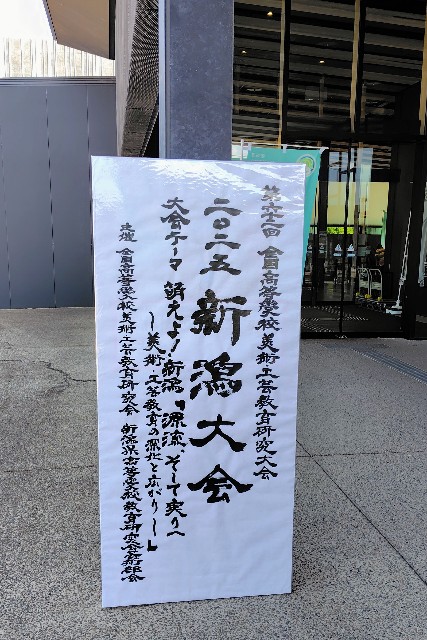 第六十一回 全国高等学校美術工芸教育研究大会
二〇二五 新潟大会
大会テーマ 訴えよ!新潟「源流、そして実りへ
~美術・工芸教育の深化と広がり~」
主催 全国高等学校美術工芸教育研究会 新潟県高等学校教育研究会芸術部会